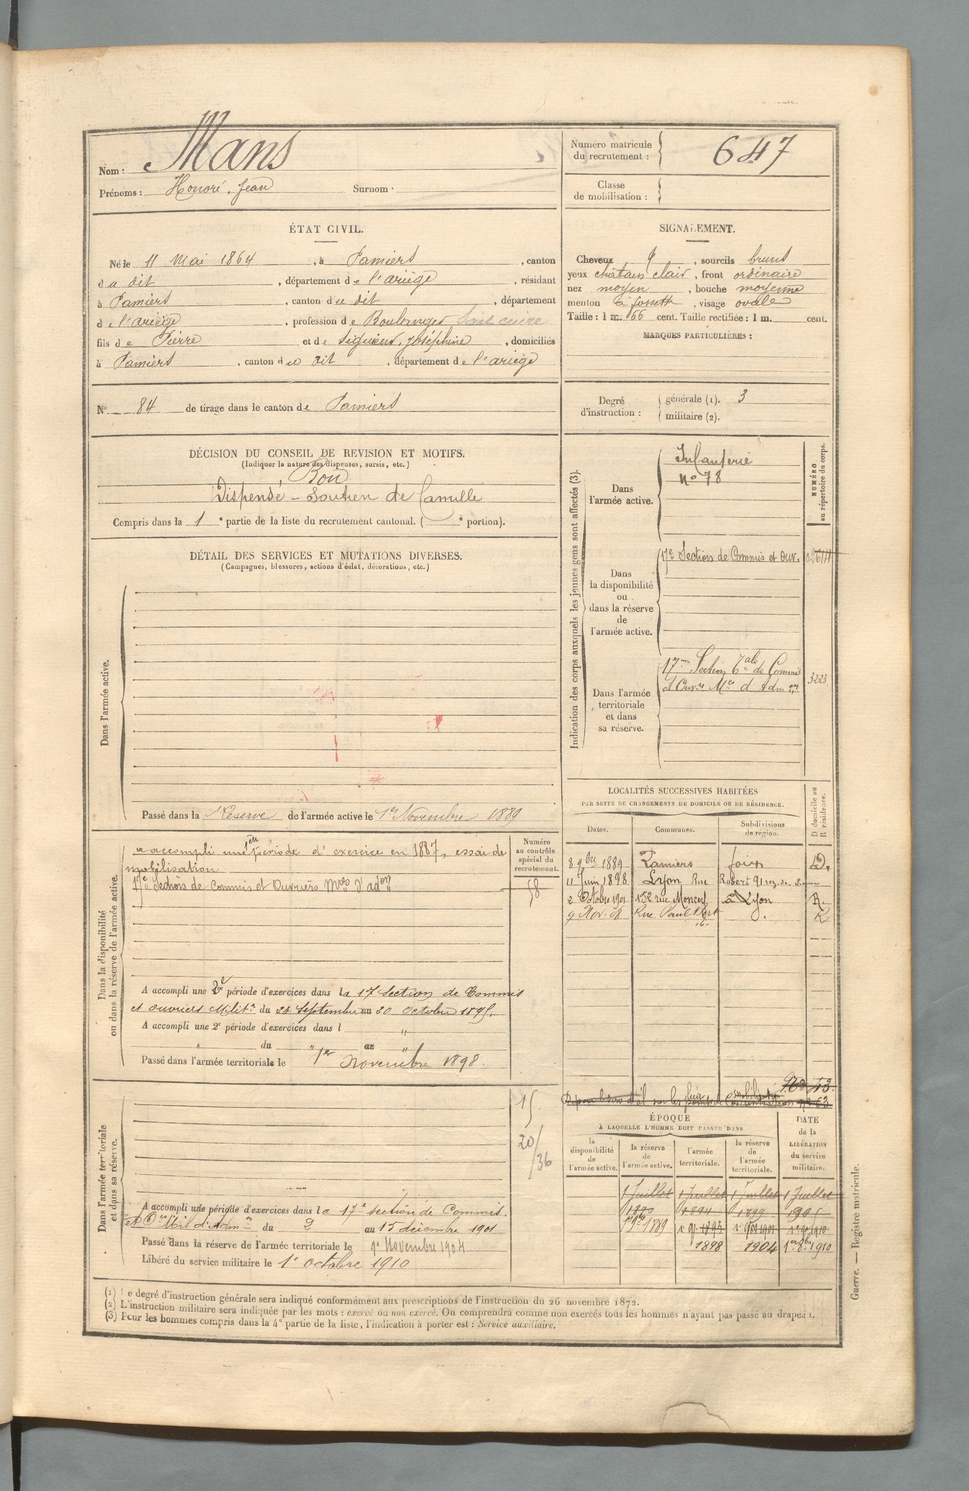 Nom : Mans
Prénoms : Honoré, Jean Surnom :
Numéro matricule du recrutement : 647
Classe de mobilisation :
ÉTAT CIVIL.
Né le 11 Mai 1864, à Pamiers, canton
du dit, département de l'ariège, résidant
à Pamiers, canton du dit, département
de l'ariège, profession de Boulanger
fils de Pierre et de, Joséphine, domiciliés
à Pamiers, canton du dit, département de l'ariège
N° 84 de tirage dans le canton de Pamiers
SIGNALEMENT.
Cheveux, sourcils bruns
yeux chatain clair, front ordinaire
nez moyen, bouche moyenne
menton à fossette, visage ovale
Taille : 1 m. 66 cent. Taille rectifiée : 1 m. cent.
MARQUES PARTICULIÈRES :
Degré d'instruction : générale (1). 3
militaire (2).
DÉCISION DU CONSEIL DE REVISION ET MOTIFS.
(Indiquer la nature des dispenses, sursis, etc.)
Bon
Dispensé - Soutien de famille
Compris dans la 1e partie de la liste du recrutement cantonal. ( e portion).
DÉTAIL DES SERVICES ET MUTATIONS DIVERSES.
(Campagnes, blessures, actions d'éclat, décorations, etc.)
Dans l'armée active.
Passé dans la Réserve de l'armée active le 1er Novembre 1889
Dans la disponibilité ou dans la réserve de l'armée active.
Numéro au contrôle spécial du recrutement.
a accompli une période d'exercice en 1887, essai de
mobilisation
17e Section de Commis et Ouvriers Mres d'adon
58
A accompli une 2e période d'exercices dans la 17 section de Commis
et ouvriers Milit. du 24 Septembre au 20 octobre 1895.
A accompli une 2e période d'exercices dans l "
" du " au "
Passé dans l'armée territoriale le 1er Novembre 1898
Dans l'armée territoriale et dans sa réserve.
15
20/36
A accompli une période d'exercices dans la 17e section de Commis
du 2 au 15 décembre 1901
Passé dans la réserve de l'armée territoriale le 1er Novembre 1904
Libéré du service militaire le 1er octobre 1910
Indication des corps auxquels les jeunes gens sont affectés (3).
NUMÉRO au répertoire du corps.
Dans l'armée active.
Infanterie
N° 78
Dans la disponibilité ou dans la réserve de l'armée active.
17e Section de Commis et Ouv.
Dans l'armée territoriale et dans sa réserve.
17me Section tale de Commis
et Ouvrs Mres d'Adm
3223
LOCALITÉS SUCCESSIVES HABITÉES
PAR SUITE DE CHANGEMENTS DE DOMICILE OU DE RÉSIDENCE.
Dates. Communes. Subdivisions de région. D domicile ou R résidence.
8 9bre 1889 Pamiers foix D.
11 Juin 1898 Lyon Rue Robert 91
2 Octobre 1901 152 rue Moncey à Lyon R.
9 Nov. 08 Rue Paul Bert R
ÉPOQUE
À LAQUELLE L'HOMME DOIT PASSER DANS
DATE de la LIBÉRATION du service militaire.
la disponibilité de l'armée active.
la réserve de l'armée active.
l'armée territoriale.
la réserve de l'armée territoriale.
1 Juillet 1 Juillet 1 Juillet 1 Juillet
1889 1894 1899 1905
1889
1898 1904 1910
Guerre. — Registre matricule.
(1) Le degré d'instruction générale sera indiqué conformément aux prescriptions de l'instruction du 26 novembre 1872.
(2) L'instruction militaire sera indiquée par les mots : exercé ou non exercé. On comprendra comme non exercés tous les hommes n'ayant pas passé au drapeau.
(3) Pour les hommes compris dans la 4e partie de la liste, l'indication à porter est : Service auxiliaire.